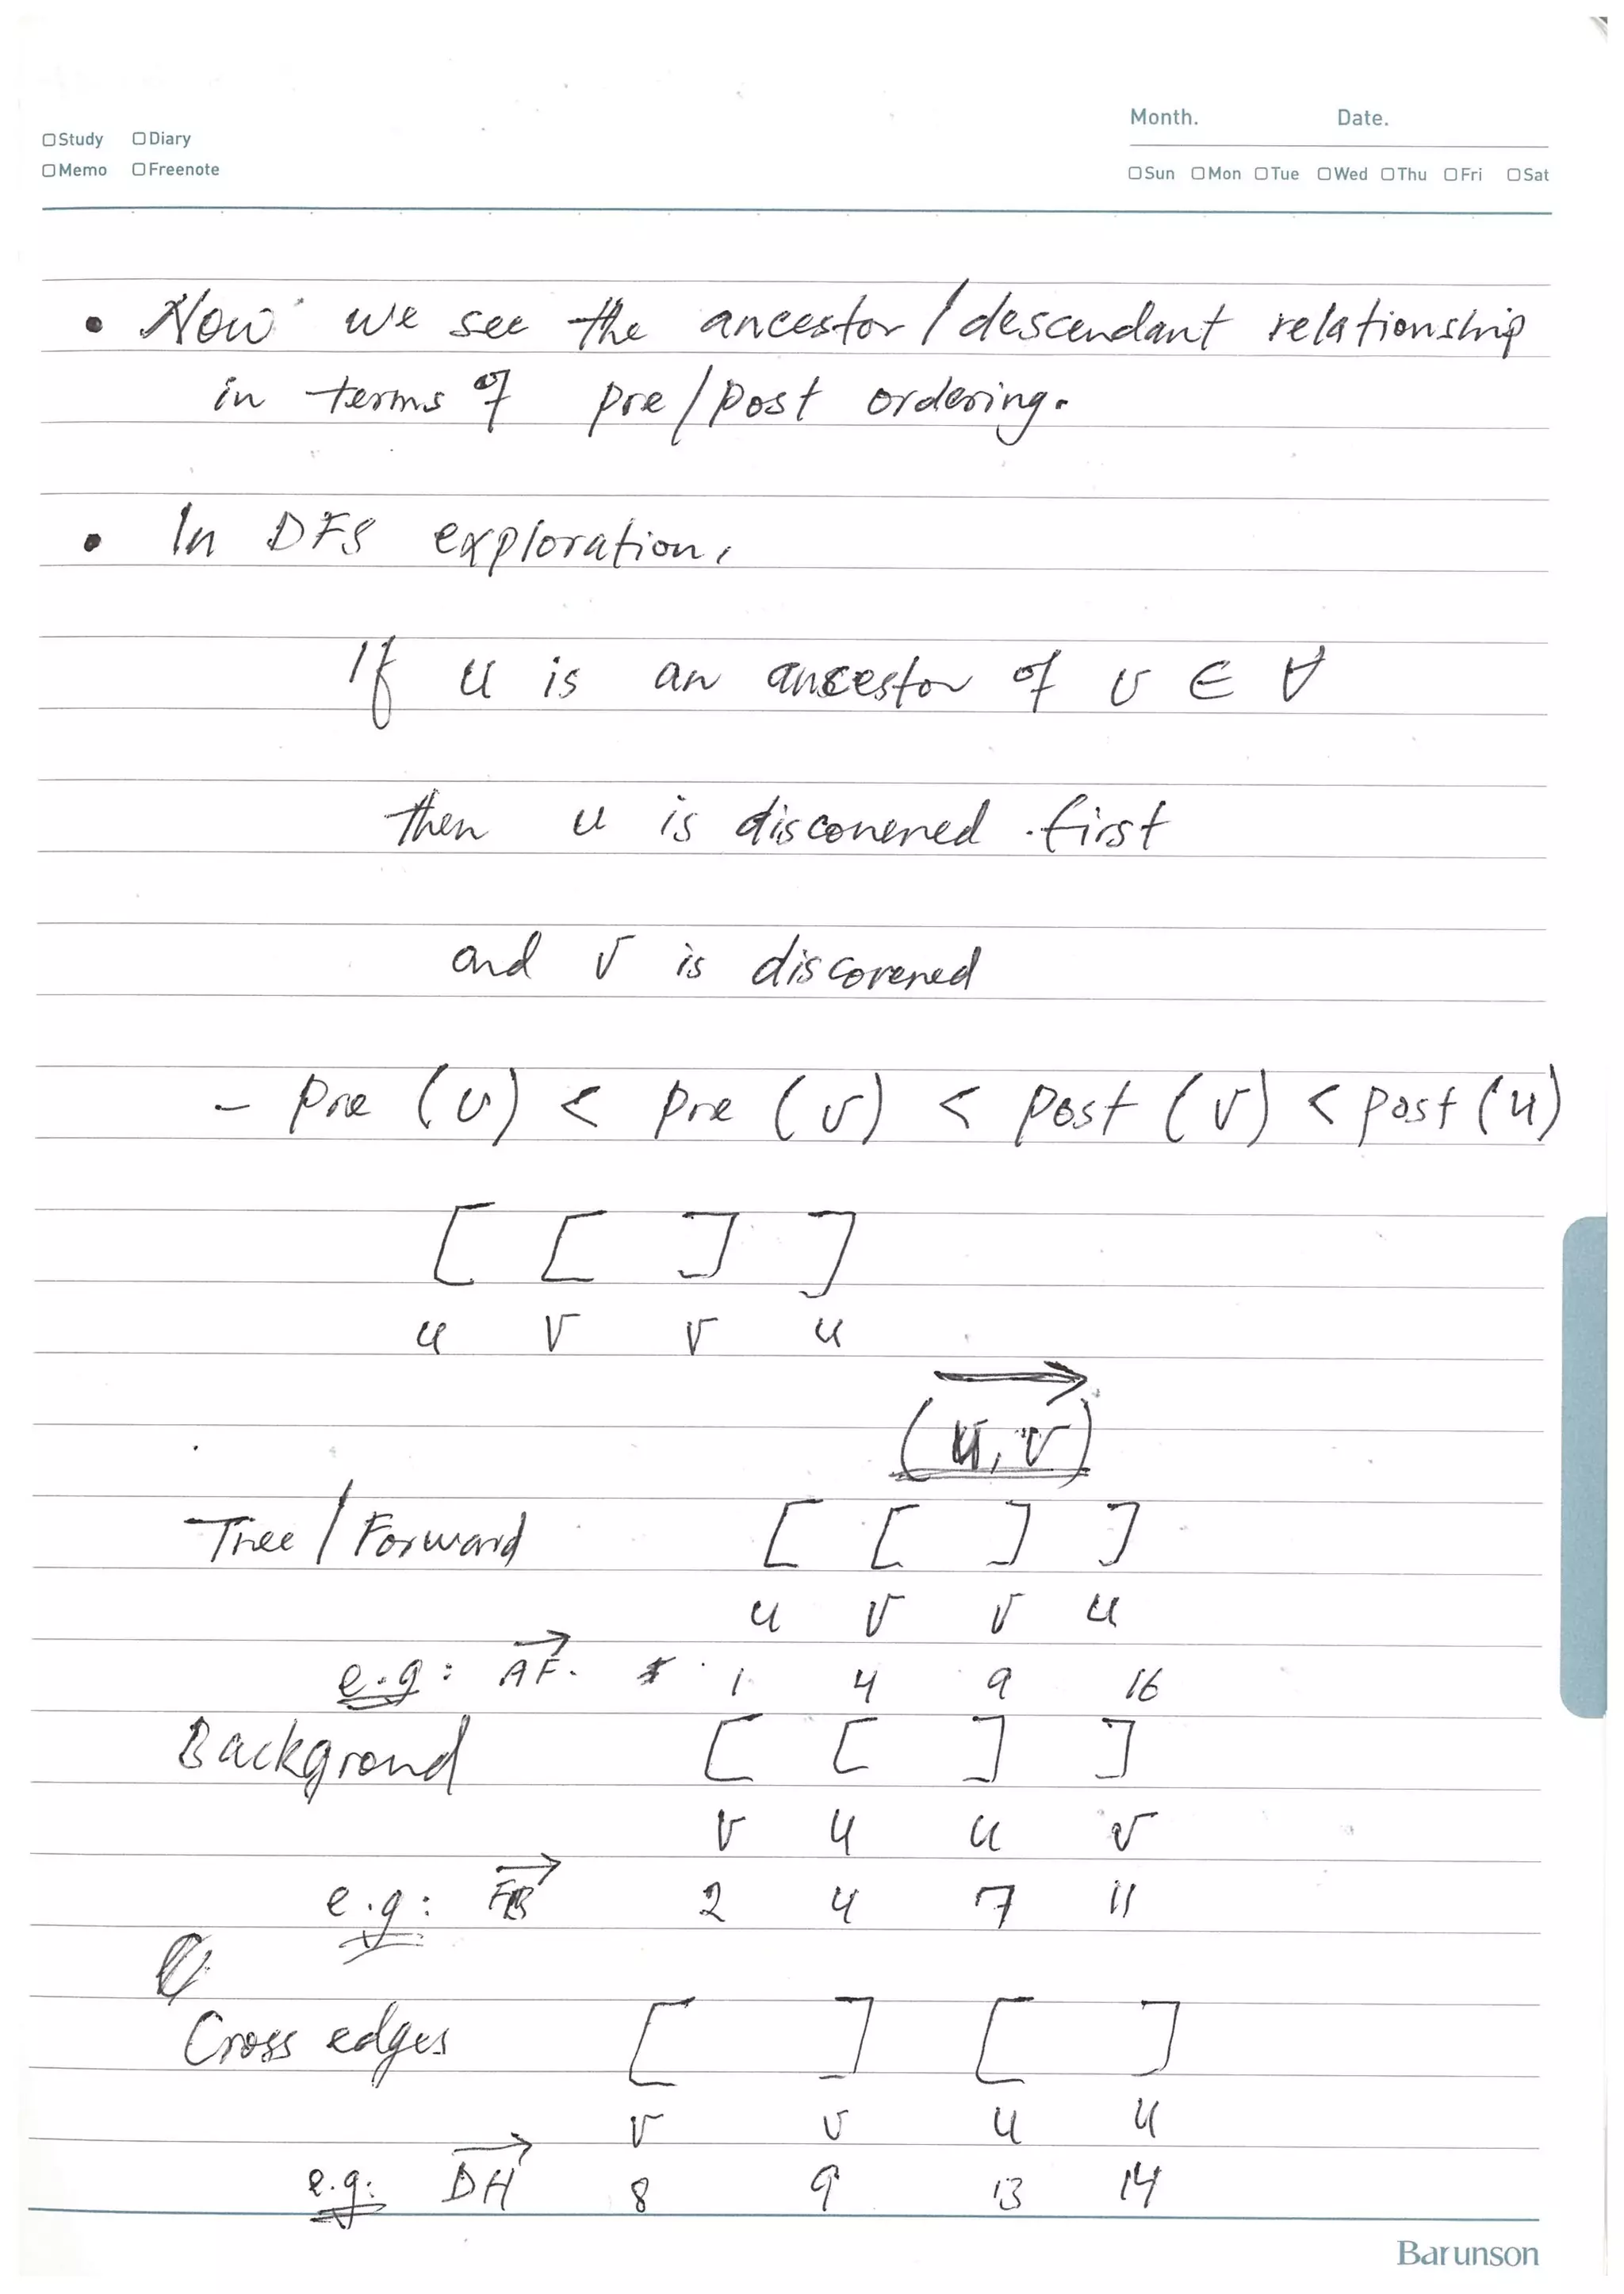 Month. Date.
□Study □Diary
□Memo □Freenote
□Sun □Mon □Tue □Wed □Thu □Fri □Sat
• Now we see the ancestor / descendant relationship
in terms of pre / post ordering.
• In DFS exploration,
If u is an ancestor of v ∈ V
then u is discovered first
and v is discovered
- pre (u) < pre (v) < post (v) < post (u)
[ [ ] ]
u v v u
(u, v)
Tree / Forward [ [ ] ]
u v v u
e.g: AF. 1 4 9 16
Backgrond [ [ ] ]
v u u v
e.g: FB 2 4 7 11
Cross edges [ ] [ ]
v v u u
e.g: DH 8 9 13 14
Barunson